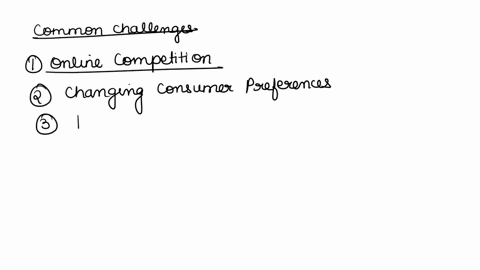 Common Challenges
① Online Competition
② Changing Consumer Preferences
③